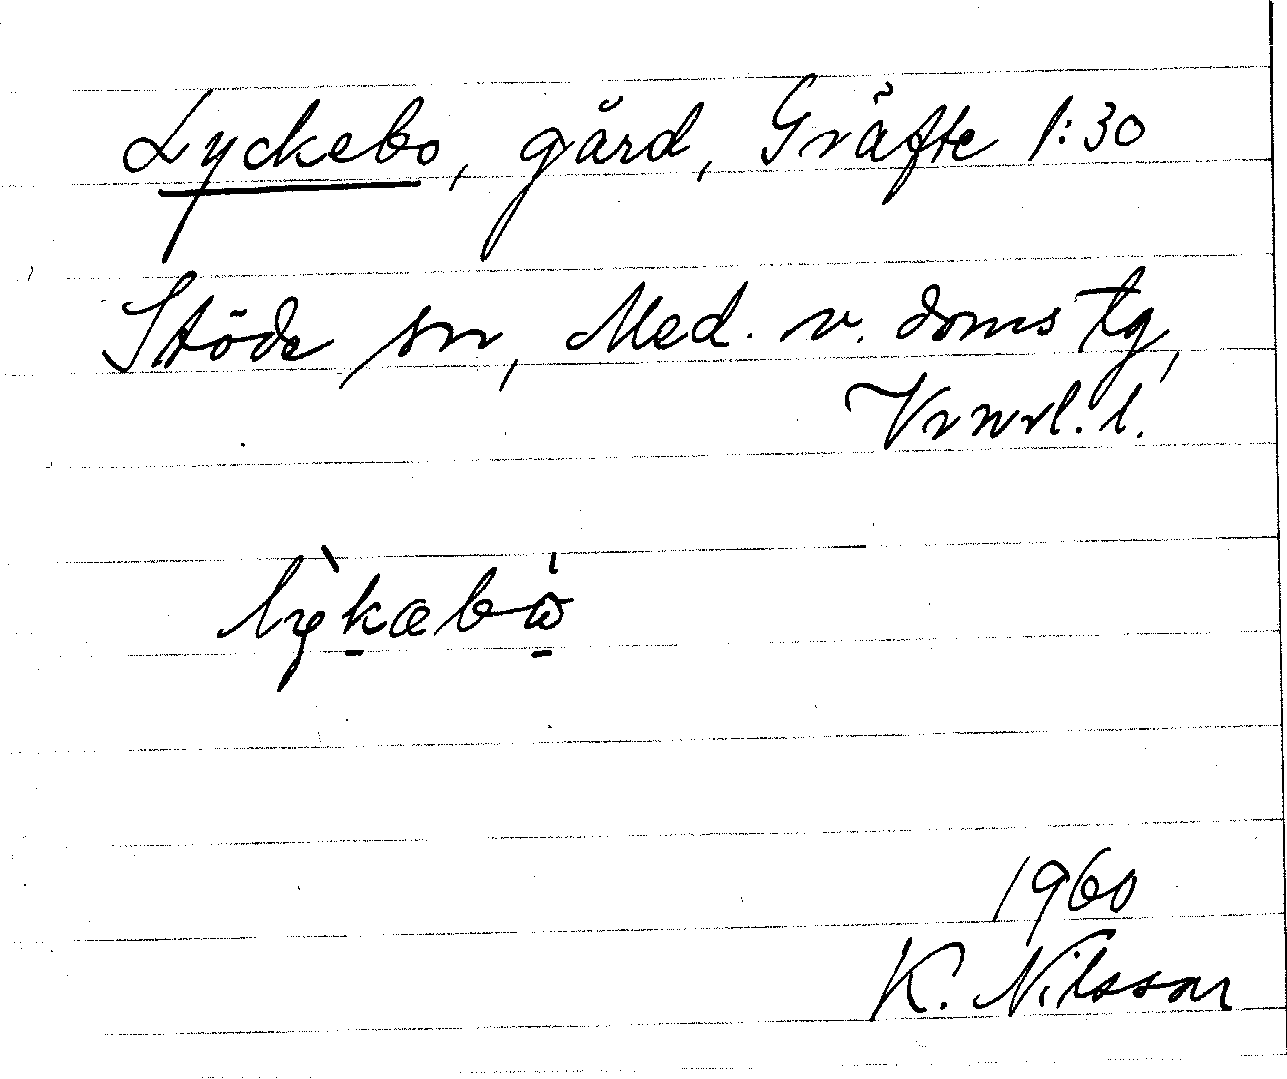 Lyckebo, gård, Gräfte 1:30
Stöde sn, Med. v. doms tg,
Vrnrl. l.
lỳkæbò
1960
K. Nilsson